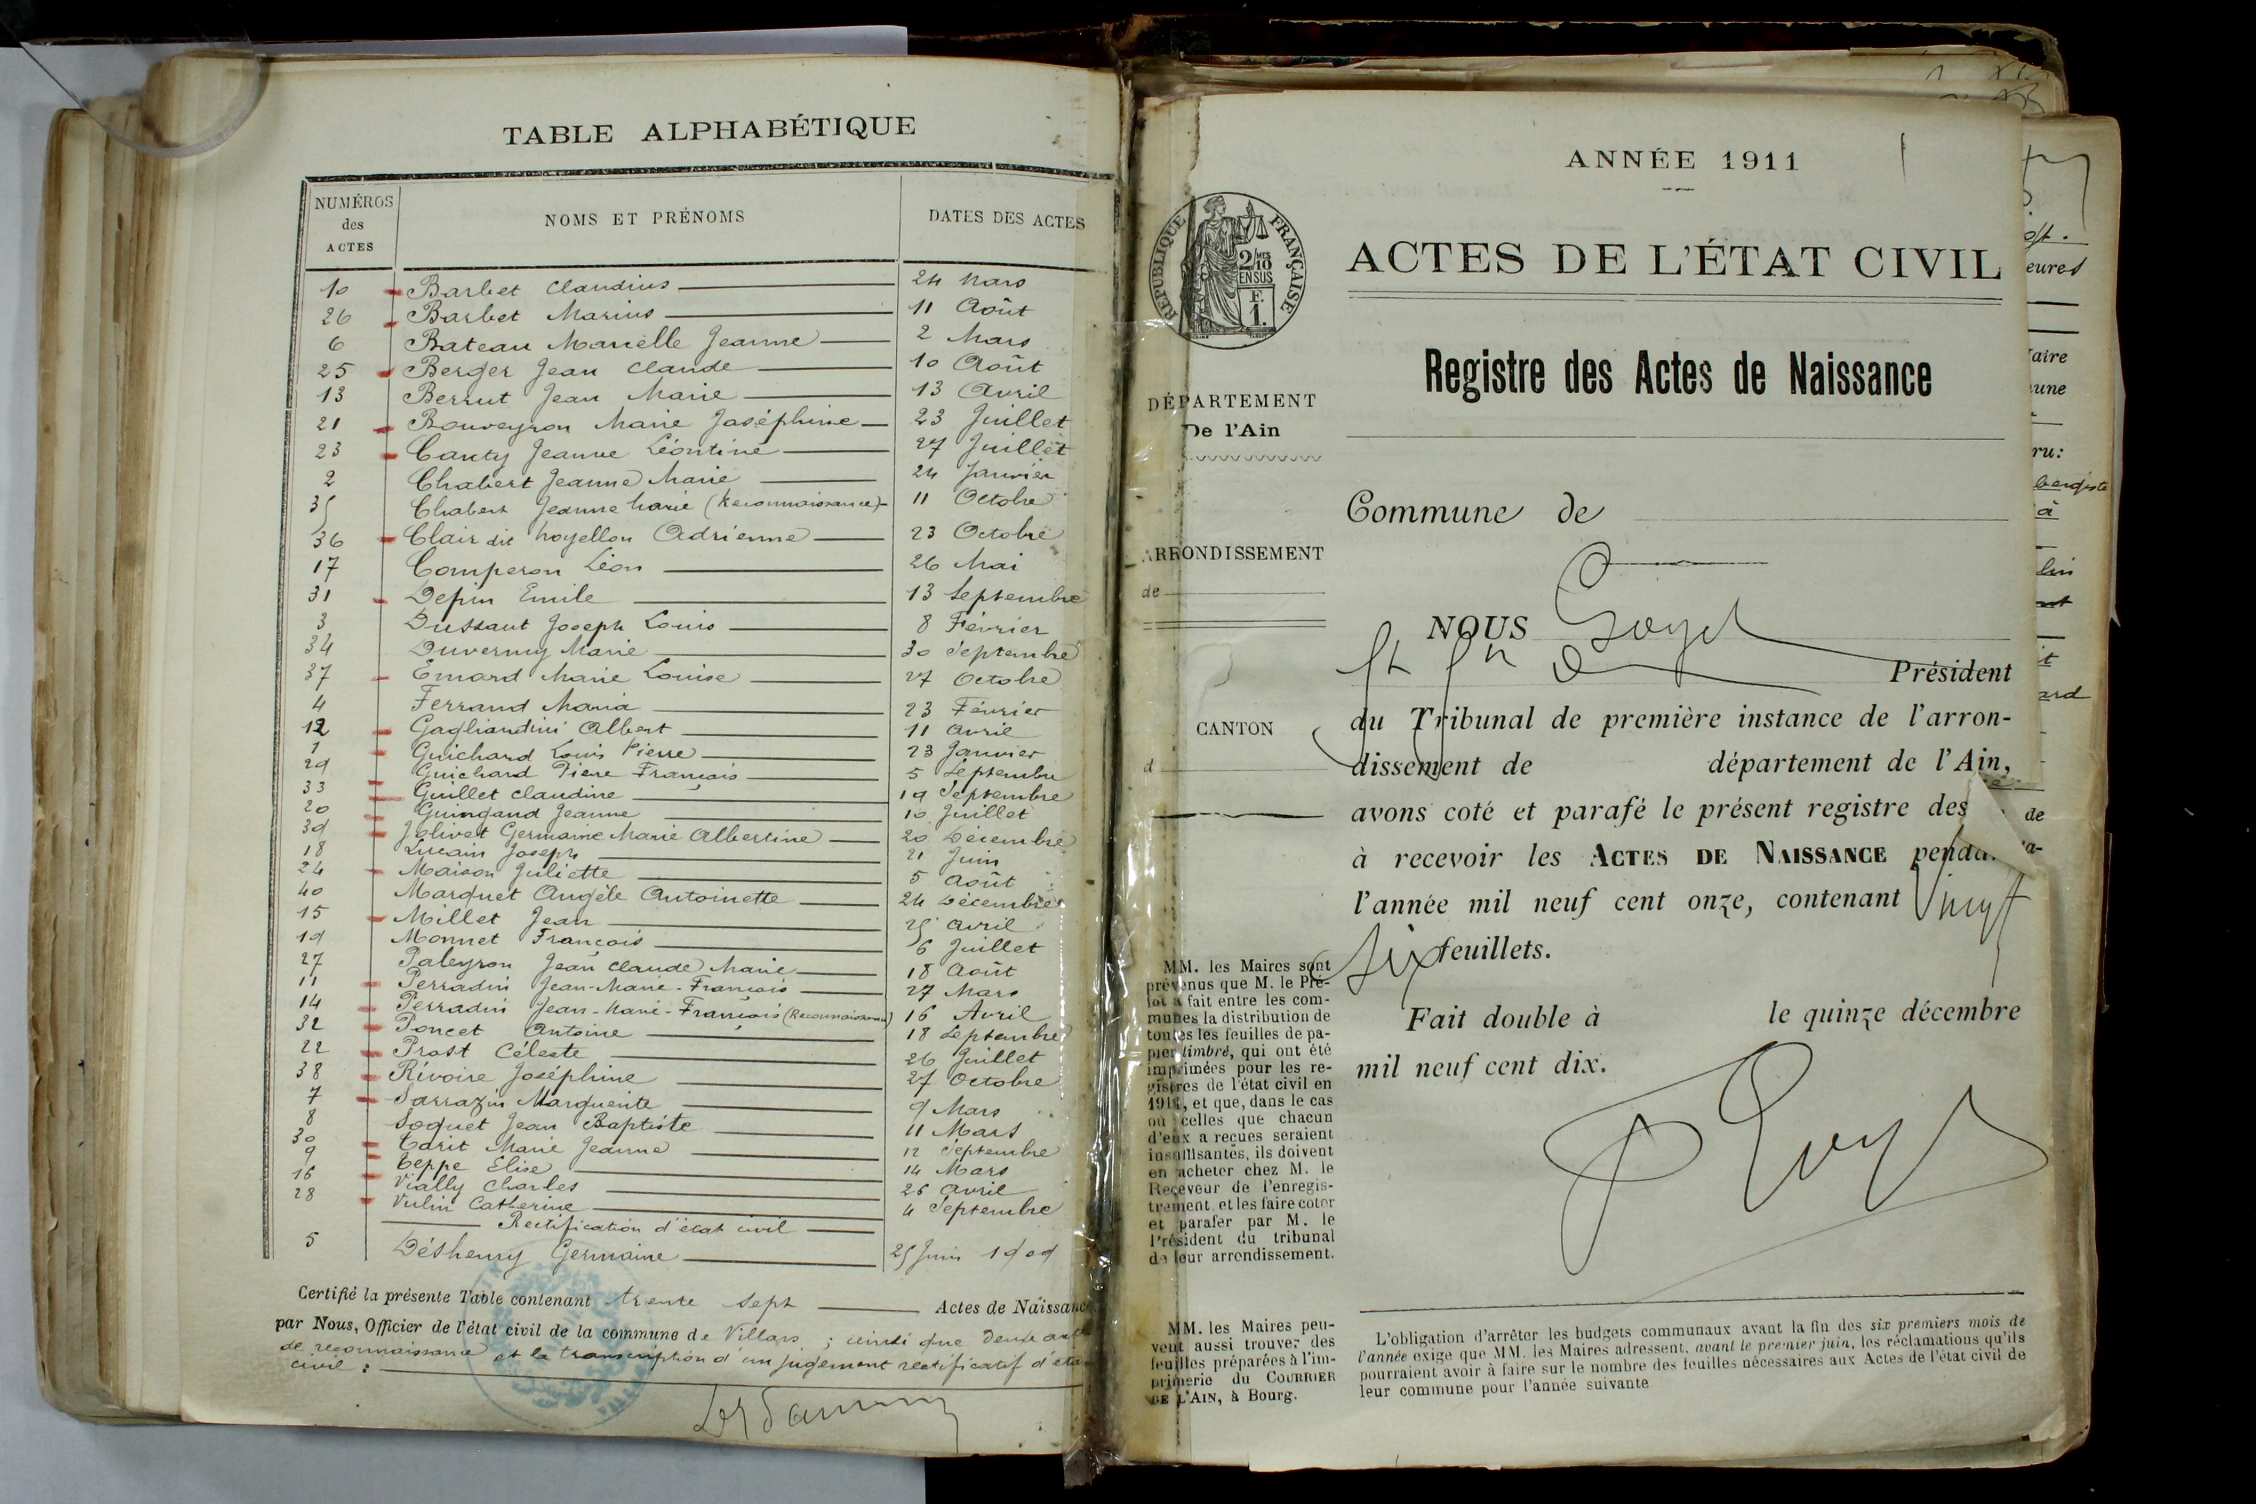 TABLE ALPHABÉTIQUE
NUMÉROS des ACTES
NOMS ET PRÉNOMS
DATES DES ACTES
10 Barbet Claudius 24 Mars
26 Barbet Marius 11 Août
6 Bateau Marielle Jeanne 2 Mars
25 Berger Jean Claude 10 Août
13 Berrut Jean Marie 13 Avril
21 Bouveyron Marie Joséphine 23 Juillet
23 Canty Jeanne Léontine 27 Juillet
2 Chabert Jeanne Marie 24 Janvier
35 Chabert Jeanne Marie (Reconnaissance) 11 Octobre
36 Clair dit Noyellon Adrienne 23 Octobre
17 Comperon Léon 26 Mai
31 Depin Emile 13 Septembre
3 Dussaut Joseph Louis 8 Février
34 Duverny Marie 30 Septembre
37 Emard Marie Louise 27 Octobre
4 Ferrand Maria 23 Février
12 Gagliandini Albert 11 Avril
1 Guichard Louis Pierre 23 Janvier
29 Guichard Pierre François 5 Septembre
33 Guillet Claudine 19 Septembre
20 Guingand Jeanne 10 Juillet
39 Jolivet Germaine Marie Albertine 20 Décembre
18 Lucain Joseph 21 Juin
24 Maison Juliette 5 Août
40 Marquet Angèle Antoinette 24 Décembre
15 Millet Jean 25 Avril
19 Monnet François 6 Juillet
27 Paleyron Jean Claude Marie 18 Août
11 Perradin Jean-Marie-François 27 Mars
14 Perradin Jean-Marie-François (Reconnaissance) 16 Avril
32 Poncet Antoine 18 Septembre
22 Prost Céleste 26 Juillet
38 Rivoire Joséphine 27 Octobre
7 Sarrazin Marguerite 9 Mars
8 Soquet Jean Baptiste 11 Mars
30 Tarit Marie Jeanne 12 Septembre
9 Teppe Elise 14 Mars
16 Vially Charles 26 Avril
28 Vulin Catherine 4 Septembre
Rectification d'état civil
5 Déshenry Germaine 25 Juin 1909
Certifié la présente Table contenant trente sept Actes de Naissance
par Nous, Officier de l'état civil de la commune de Villars ; ainsi que deux actes
de reconnaissance et la transcription d'un jugement rectificatif d'état
civil :
ANNÉE 1911
RÉPUBLIQUE FRANÇAISE
2/10 MES
EN SUS
F.
1.
ACTES DE L'ÉTAT CIVIL
Registre des Actes de Naissance
DÉPARTEMENT
De l'Ain
ARRONDISSEMENT
de
CANTON
d
Commune de
NOUS Goyet
Président
du Tribunal de première instance de l'arron-
dissement de département de l'Ain,
avons coté et parafé le présent registre des
à recevoir les ACTES DE NAISSANCE penda
l'année mil neuf cent onze, contenant Vingt
six feuillets.
Fait double à le quinze décembre
mil neuf cent dix.
MM. les Maires sont
prévenus que M. le Pré-
fet a fait entre les com-
munes la distribution de
toutes les feuilles de pa-
pier timbré, qui ont été
imprimées pour les re-
gistres de l'état civil en
1911, et que, dans le cas
où celles que chacun
d'eux a reçues seraient
insuffisantes, ils doivent
en acheter chez M. le
Receveur de l'enregis-
trement et les faire coter
et parafer par M. le
Président du tribunal
de leur arrondissement.
MM. les Maires peu-
vent aussi trouver des
feuilles préparées à l'im-
primerie du COURRIER
DE L'AIN, à Bourg.
L'obligation d'arrêter les budgets communaux avant la fin des six premiers mois de
l'année exige que MM. les Maires adressent, avant le premier juin, les réclamations qu'ils
pourraient avoir à faire sur le nombre des feuilles nécessaires aux Actes de l'état civil de
leur commune pour l'année suivante
eures
aire
une
ru:
à
ard
de